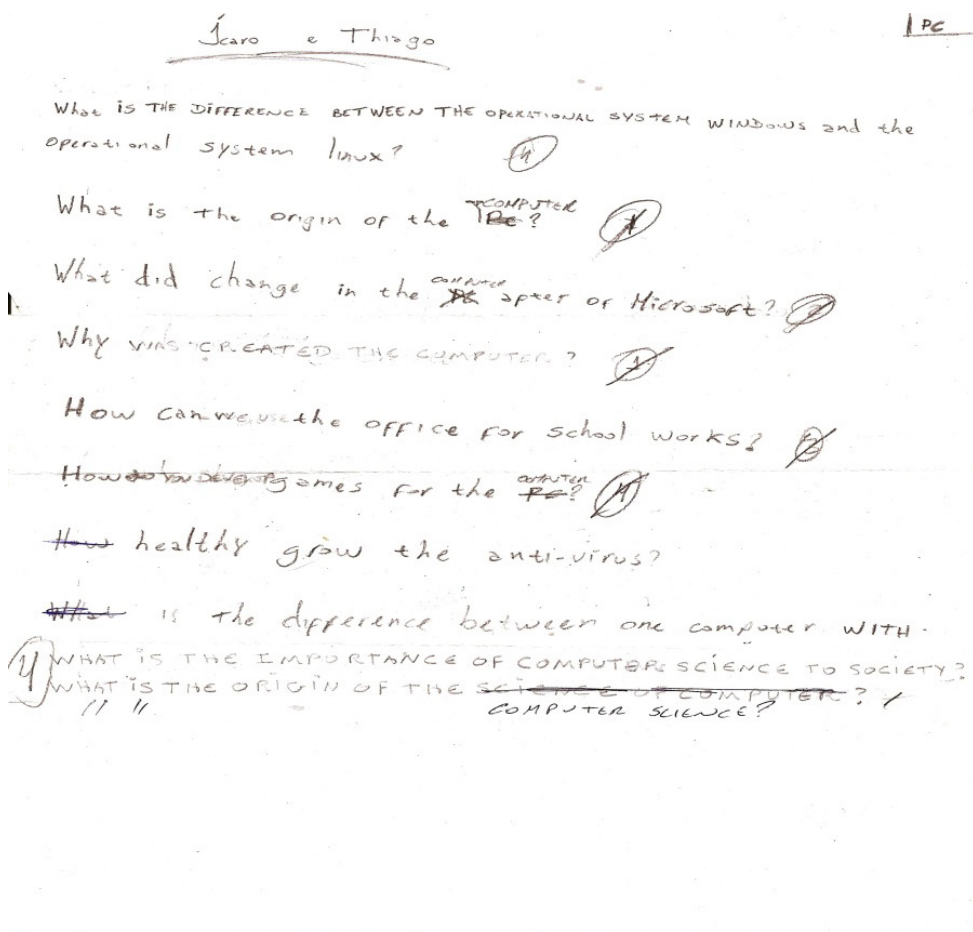 Ícaro e Thiago
1 PC
What is THE DIFFERENCE BETWEEN THE OPERATIONAL SYSTEM WINDOWS and the
operational system linux? 4
What is the origin of the COMPUTER?
What did change in the COMPUTER apter of Microsoft?
Why WAS CREATED THE COMPUTER?
How can we use the office for school works? 2
How do you develop games for the COMPUTER? 4
How healthy grow the anti-virus?
What is the difference between one computer WITH.
4 WHAT IS THE IMPORTANCE OF COMPUTER SCIENCE TO SOCIETY?
WHAT IS THE ORIGIN OF THE SCIENCE OF COMPUTER?
" " COMPUTER SCIENCE?